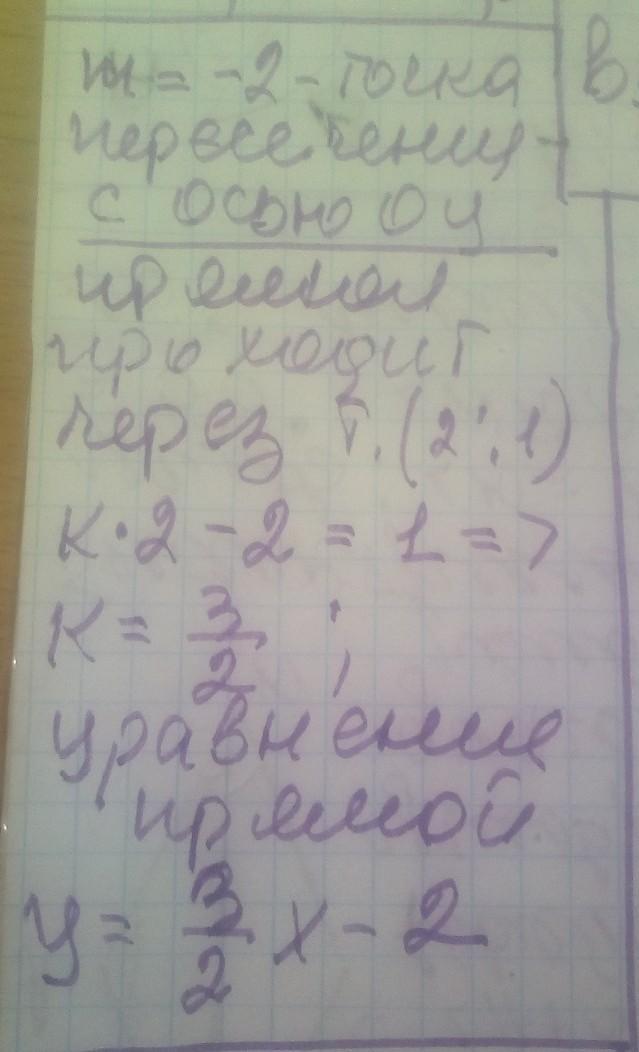 m = -2 - точка
пересечения
с осью оу
прямая
проходит
через т. (2; 1)
к·2 - 2 = 1 =>
к = 3/2 ;
уравнение
прямой
у = 3/2 х - 2
В.